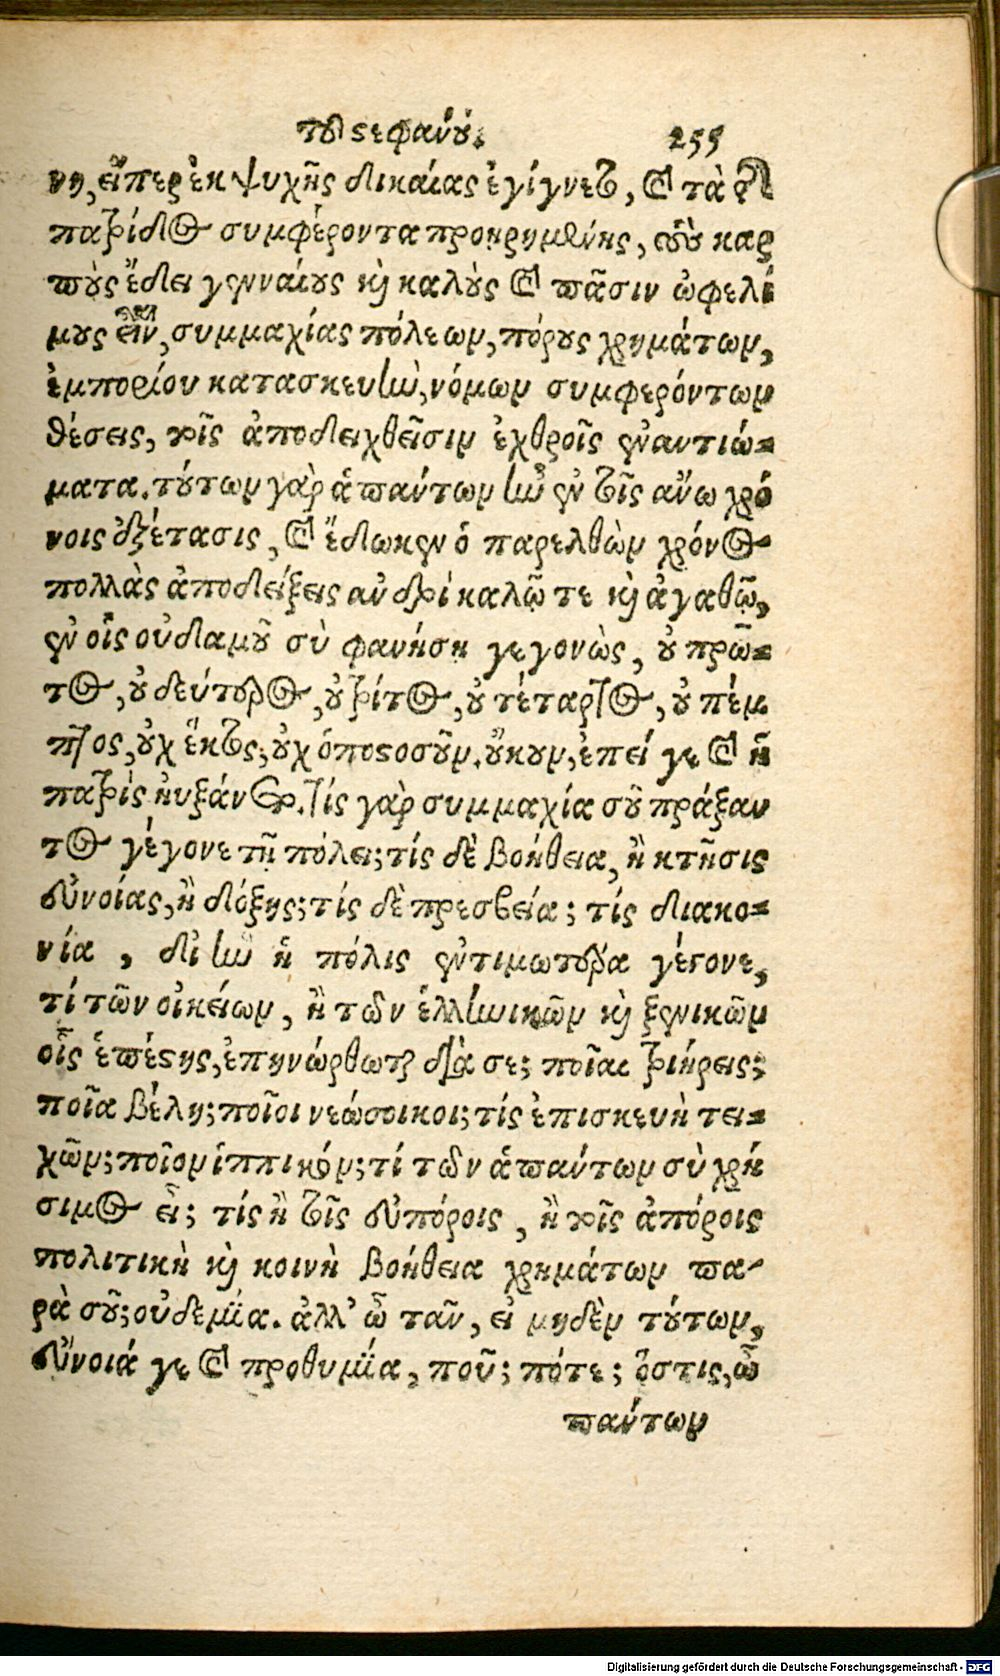 τοῦ στεφάνου. 255
νη, εἴπερ ἐκ ψυχῆς δικαίας ἐγίγνετο, καὶ τὰ τῆς
πατρίδος συμφέροντα προῃρημένης, τοὺς καρ
ποὺς ἔδει γενναίους καὶ καλοὺς καὶ πᾶσιν ὠφελί
μους εἶναι, συμμαχίας πόλεων, πόρους χρημάτων,
ἐμπορίου κατασκευὴν, νόμων συμφερόντων
θέσεις, τοῖς ἀποδειχθεῖσιν ἐχθροῖς ἐναντιώ-
ματα. τούτων γὰρ ἁπάντων ἦν ἐν τοῖς ἄνω χρό
νοις ἐξέτασις, καὶ ἔδωκεν ὁ παρελθὼν χρόνος
πολλὰς ἀποδείξεις ἀνδρὶ καλῷ τε καὶ ἀγαθῷ,
ἐν οἷς οὐδαμοῦ σὺ φανήσῃ γεγονὼς, οὐ πρῶ-
τος, οὐ δεύτερος, οὐ τρίτος, οὐ τέταρτος, οὐ πέμ
πτος, οὐχ ἕκτος, οὐχ ὁποστοσοῦν. οὔκουν, ἐπεί γε καὶ ἡ
πατρὶς ηὐξάνετο. τίς γὰρ συμμαχία σοῦ πράξαν
τος γέγονε τῇ πόλει; τίς δὲ βοήθεια, ἢ κτῆσις
εὐνοίας, ἢ δόξης; τίς δὲ πρεσβεία; τίς διακο-
νία, δι' ἣν ἡ πόλις ἐντιμωτέρα γέγονε,
τί τῶν οἰκείων, ἢ τῶν ἑλληνικῶν καὶ ξενικῶν
οἷς ἐπέστης, ἐπηνώρθωται διὰ σε; ποῖαι τριήρεις;
ποῖα βέλη; ποῖοι νεώσοικοι; τίς ἐπισκευὴ τει-
χῶν; ποῖον ἱππικόν; τί τῶν ἁπάντων σὺ χρή
σιμος εἶ; τίς ἢ τοῖς εὐπόροις, ἢ τοῖς ἀπόροις
πολιτικὴ καὶ κοινὴ βοήθεια χρημάτων πα-
ρὰ σοῦ; οὐδεμία. ἀλλ' ὦ τᾶν, εἰ μηδὲν τούτων,
εὔνοιά γε καὶ προθυμία, ποῦ; πότε; ὅστις, ὦ
πάντων
Digitalisierung gefördert durch die Deutsche Forschungsgemeinschaft - DFG